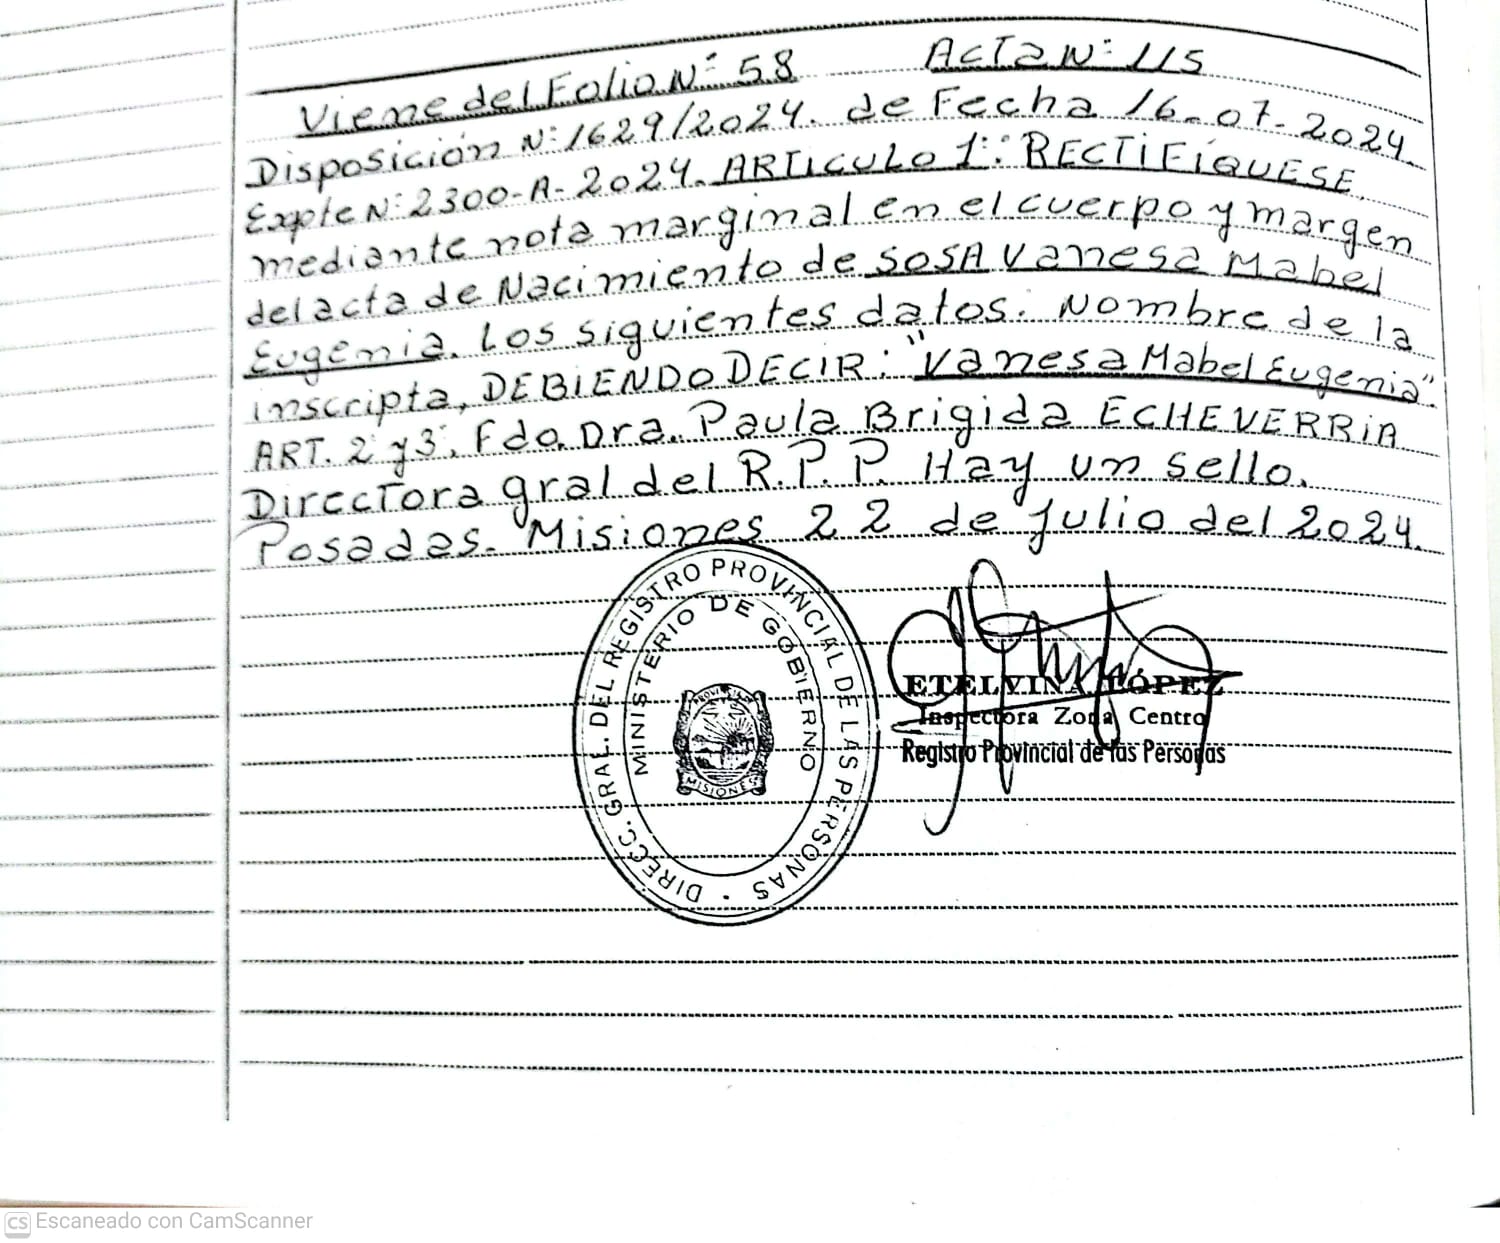 Viene del Folio N° 58 ACTA N° 115
Disposición N° 1629/2024. de Fecha 16-07-2024.
Expte N° 2300-A-2024. ARTICULO 1°: RECTIFÍQUESE
mediante nota marginal en el cuerpo y margen
del acta de Nacimiento de SOSA Vanesa Mabel
Eugenia. Los siguientes datos. Nombre de la
inscripta, DEBIENDO DECIR: "Vanesa Mabel Eugenia".
ART. 2° y 3°. Fdo. Dra. Paula Brigida ECHEVERRIA
Directora gral del R.P.P. Hay un sello.
Posadas. Misiones 22 de Julio del 2024.
DIRECC. GRAL. DEL REGISTRO PROVINCIAL DE LAS PERSONAS
MINISTERIO DE GOBIERNO
PROVINCIA DE
MISIONES
ETELVINA LÓPEZ
Inspectora Zona Centro
Registro Provincial de las Personas
CS Escaneado con CamScanner